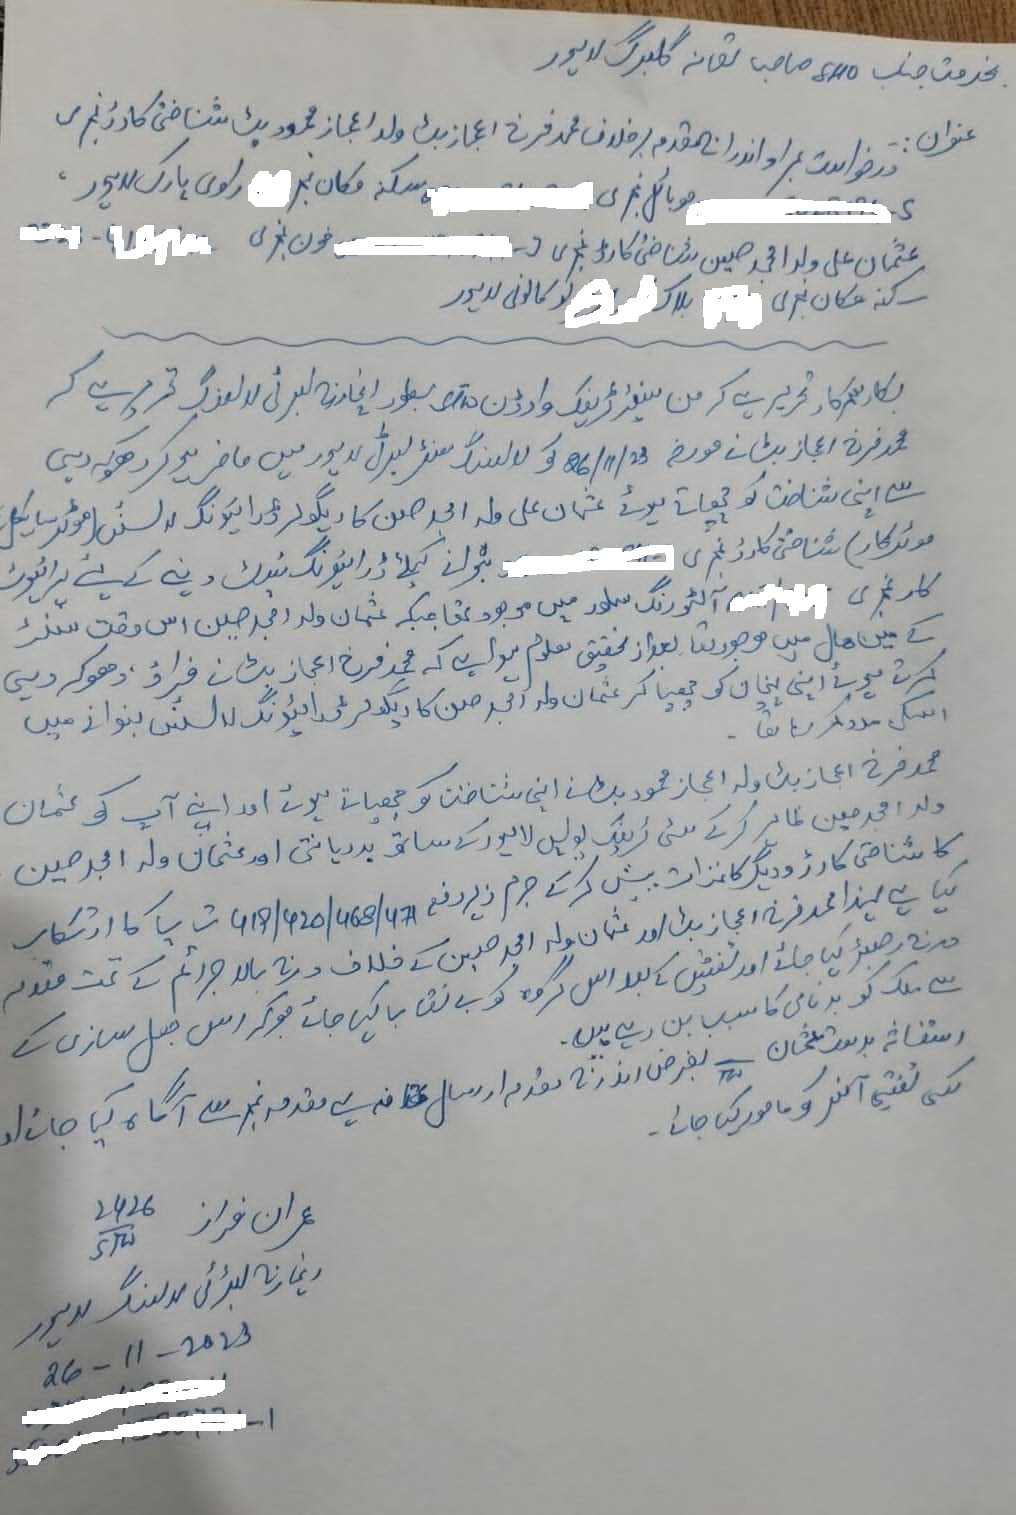 بخدمت جناب SHO صاحب تھانہ گلبرگ لاہور
عنوان: درخواست بمراد اندراج مقدمہ برخلاف محمد فرخ اعجاز بٹ ولد اعجاز محمود بٹ شناختی کارڈ نمبری
5- موبائل نمبری سکنہ مکان نمبر راوی پارک لاہور،
عثمان علی ولد امجد حسین شناختی کارڈ نمبری فون نمبری
سکنہ مکان نمبری بلاک کالونی لاہور
بکار سرکار تحریر ہے کہ من سینئر ٹریفک وارڈن بطور انچارج لبرٹی لائسنسنگ تحریر ہے کہ
محمد فرخ اعجاز بٹ نے مورخہ 26/11/23 کو لائسنسنگ سنٹر لبرٹی لاہور میں حاضر ہو کر دھوکہ دہی
سے اپنی شناخت کو چھپاتے ہوئے عثمان علی ولد امجد حسین کا ریگولر ڈرائیونگ لائسنس (موٹر سائیکل
موٹر کار) شناختی کارڈ نمبری بنوانے کیلئے ڈرائیونگ ٹیسٹ دینے کے لیے پرائیویٹ
کار نمبری آلٹو رنگ سلور میں موجود تھا جبکہ عثمان ولد امجد حسین اس وقت سنٹر
کے مین ہال میں موجود تھا بعد از تحقیق معلوم ہوا ہے کہ محمد فرخ اعجاز بٹ نے فراڈ، دھوکہ دہی
کرتے ہوئے اپنی پہچان کو چھپا کر عثمان ولد امجد حسین کا ریگولر ڈرائیونگ لائسنس بنوانے میں
اسکی مدد کر رہا تھا۔
محمد فرخ اعجاز بٹ ولد اعجاز محمود بٹ نے اپنی شناخت کو چھپاتے ہوئے اور اپنے آپ کو عثمان
ولد امجد حسین ظاہر کر کے سٹی ٹریفک پولیس لاہور کے ساتھ بددیانتی اور عثمان ولد امجد حسین
کا شناختی کارڈ و دیگر کاغذات پیش کر کے جرم زیر دفع 419/420/468/471 ت پ کا ارتکاب
کیا ہے لہذا محمد فرخ اعجاز بٹ اور عثمان ولد امجد حسین کے خلاف درج بالا جرائم کے تحت مقدمہ
درج رجسٹر کیا جائے اور تفتیش کے بعد اس گروہ کو بے نقاب کیا جائے جو کہ اس جعل سازی کے
سے ملک کو بدنامی کا سبب بن رہے ہیں۔
استغاثہ بدست عثمان بغرض اندراج مقدمہ ارسال ہے مقدمہ نمبر سے آگاہ کیا جائے اور
کسی تفتیشی آفسر کو مامور کیا جائے۔
عمران فراز 2426
STW
انچارج لبرٹی لائسنسنگ لاہور
26-11-2023
-1